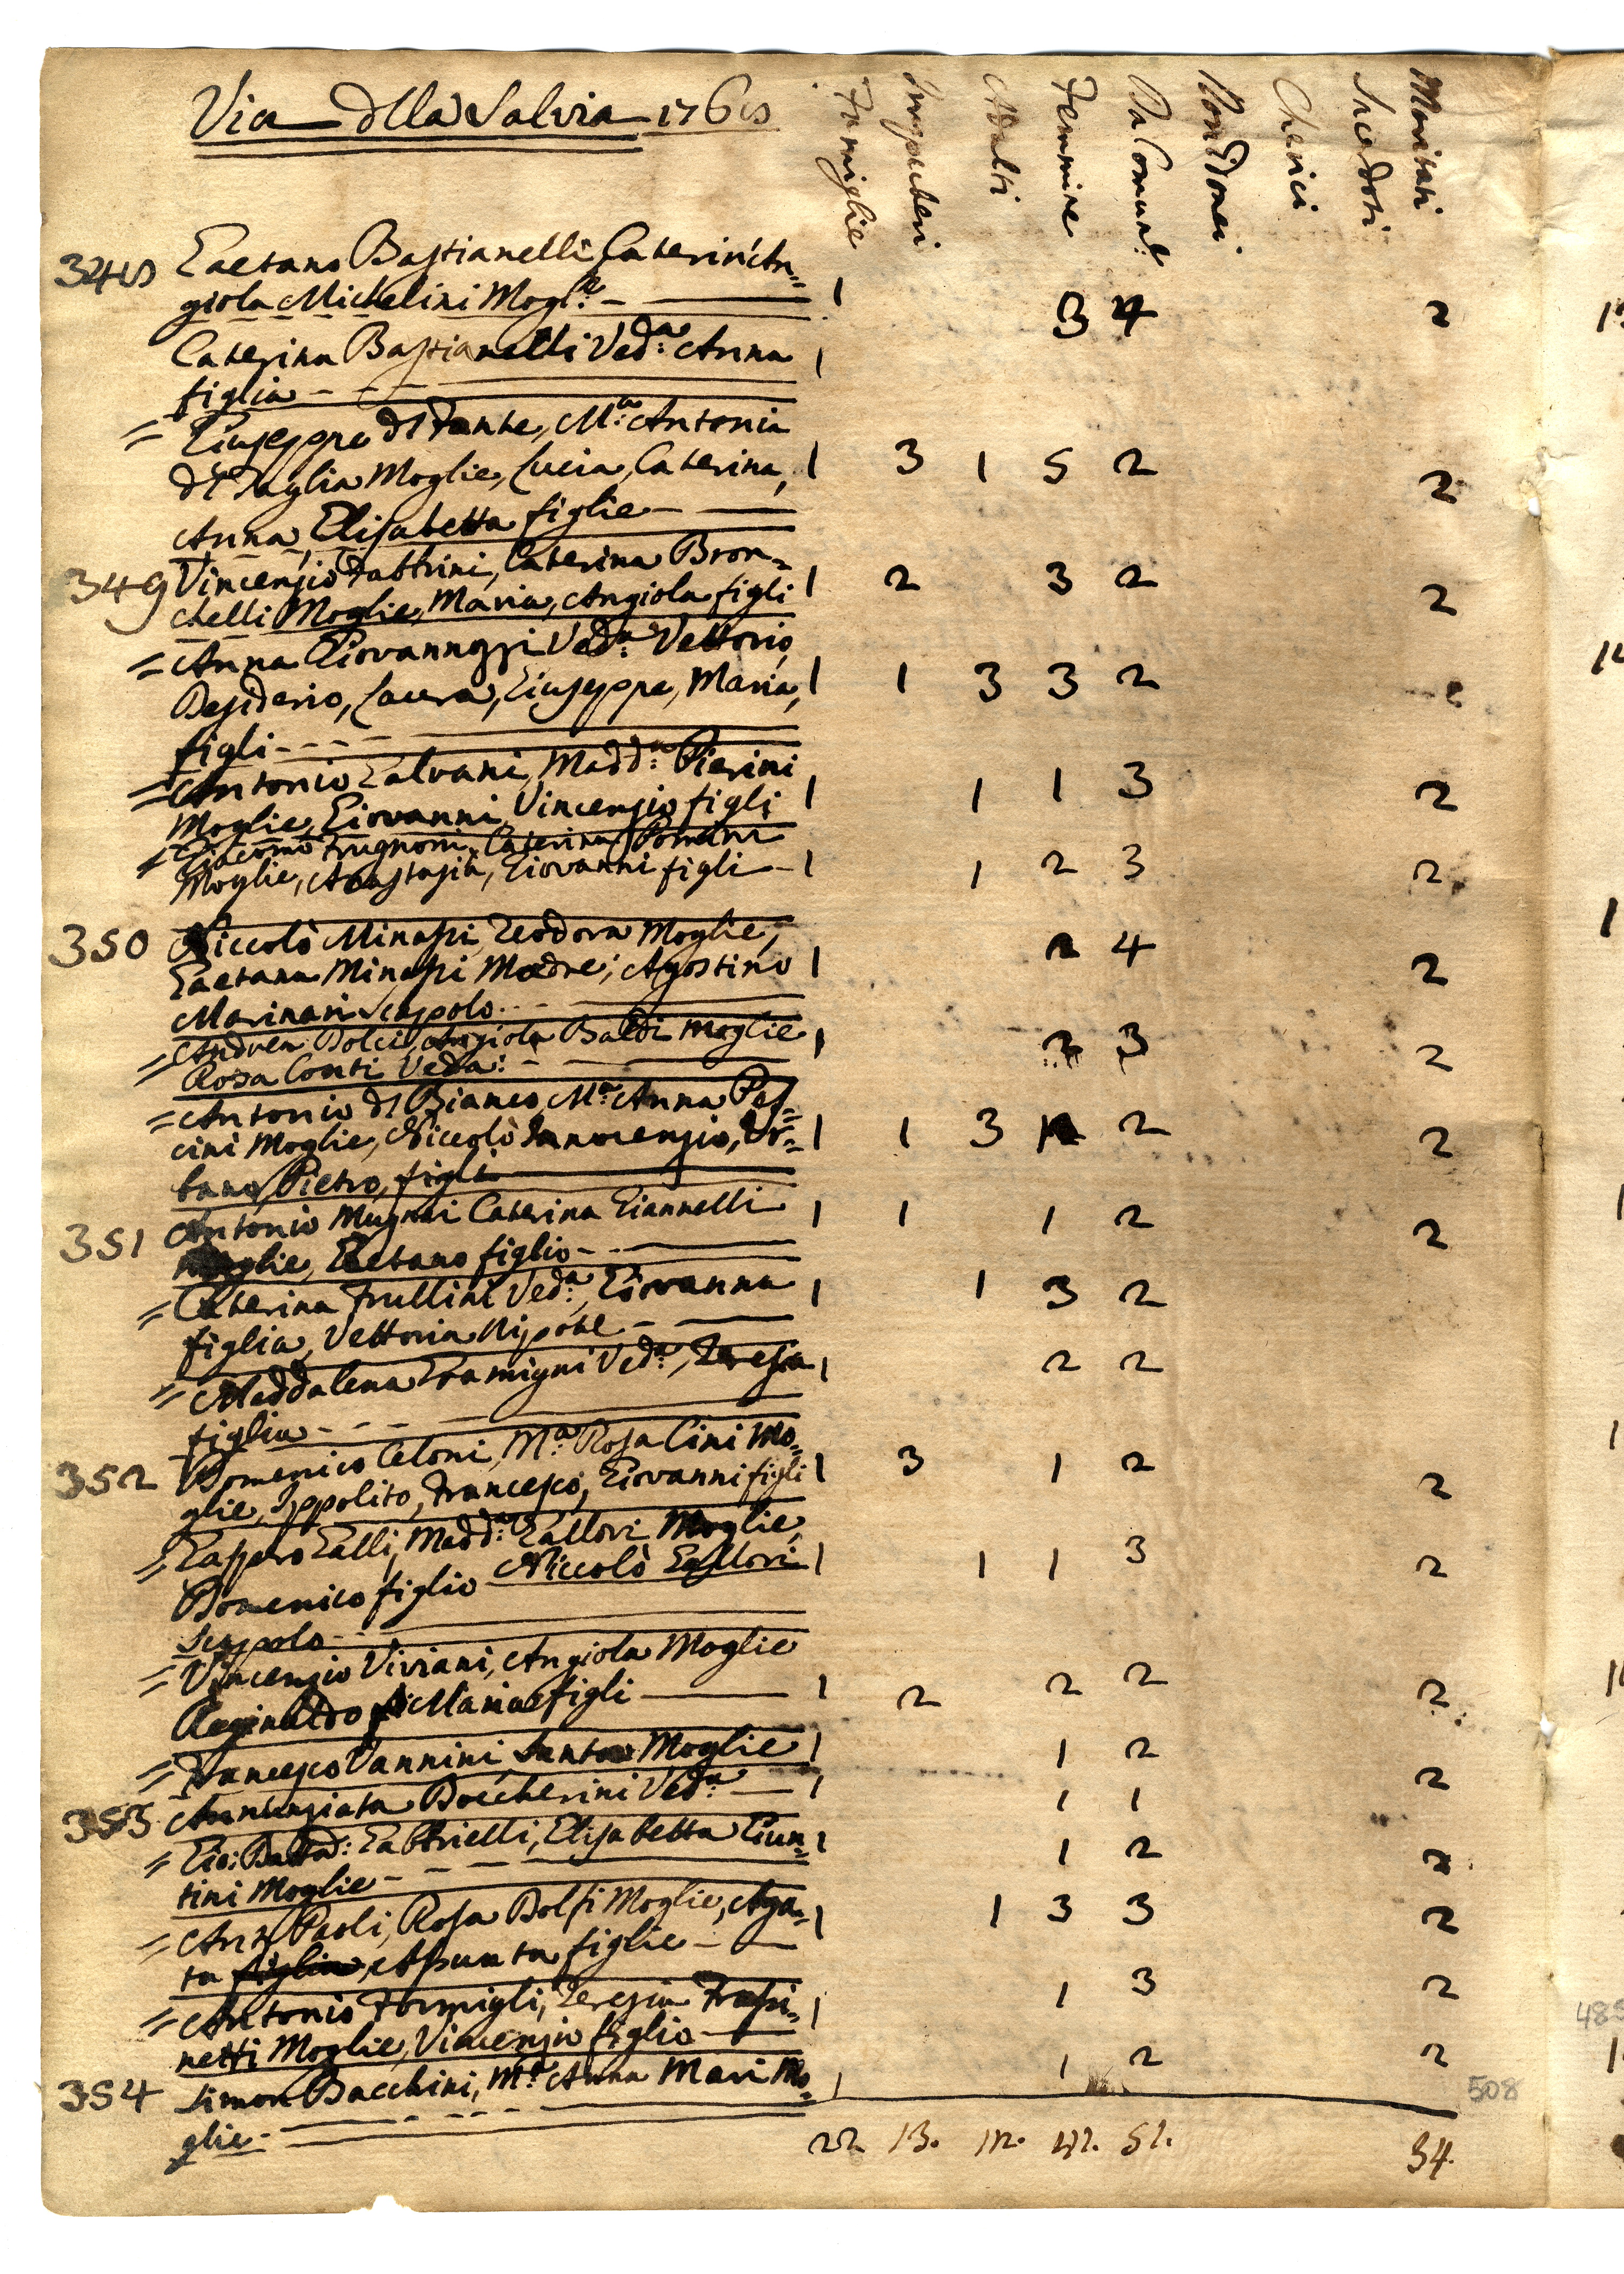 Via dlla Salvia 1768
Famiglie Impuberi Adulti Femmine Da Comun: Non Idonei Cherici Sacerdoti Maritati
348 Gaetano Bastianelli, Caterin'An=
giola Michelini Mogl:e 1 3 4 2
Caterina Bastianelli Ved:a Anna 1
figlia
= Giuseppe dl Fante, M:a Antonia
dl Taglia Moglie, Lucia, Caterina, 1 3 1 5 2 2
Anna, Elisabetta figlie
349 Vincenzio Fabbrini, Caterina Bron=
chelli Moglie, Maria, Angiola figli 1 2 3 2 2
= Anna Giovannozzi Ved:a Vettorio,
Desiderio, Laura, Giuseppe, Maria, 1 1 3 3 2
figli
= Antonio Galvani, Madd:a Pierini
Moglie, Giovanni, Vincenzio figli 1 1 1 3 2
= Giacomo Frugnoni, Caterina
Moglie, Anastasia, Giovanni figli 1 1 2 3 2
350 Niccolò Minassi, Teodora Moglie,
Gaetana Minassi Madre; Agostino 1 2 4 2
Marinari Scapolo
= Andrea Dolci, Angiola Baldi Moglie 1 3 2
Rosa Conti Veda:
= Antonio dl Bianco, M:a Anna Pes=
cini Moglie, Niccolò Innocenzio, Ur= 1 1 3 2 2
bano, Pietro, figli
351 Antonio Mugnai Caterina Giannelli 1 1 1 2 2
Moglie, Gaetano figlio
= Caterina Frullini Ved:a, Giovanna 1 1 3 2
figlia, Vettoria Nipote
= Maddalena Gramigni Ved:a, Teresa 1 2 2
figlia
352 Domenico Celoni, M:a Rosa Cini Mo=
glie, Ippolito, Francesco, Giovanni figli 1 3 1 2 2
= Gaspero Galli, Madd:a Gallori Moglie,
Domenico figlio Niccolò Gallori 1 1 1 3 2
Scapolo
= Vincenzio Viviani, Angiola Moglie
Reginaldo Maria figli 1 2 2 2 2
= Francesco Vannini, Santa Moglie 1 1 2 2
353 Annunziata Boccherini Ved:a 1 1 1
= Gio: Batta: Gabbrielli, Elisabetta Giun= 1 1 2 2
tini Moglie
= Ant: Paoli, Rosa Dolfi Moglie, Aga= 1 1 3 3 2
ta figlia, Assunta figlie
= Antonio Formigli, Teresia Frassi= 1 1 3 2
netti Moglie, Vincenzio figlio
354 Simon Bacchini, M:a Anna Mari Mo= 1 1 2 2
glie
22. 13. 12. 42. 52. 34.
508